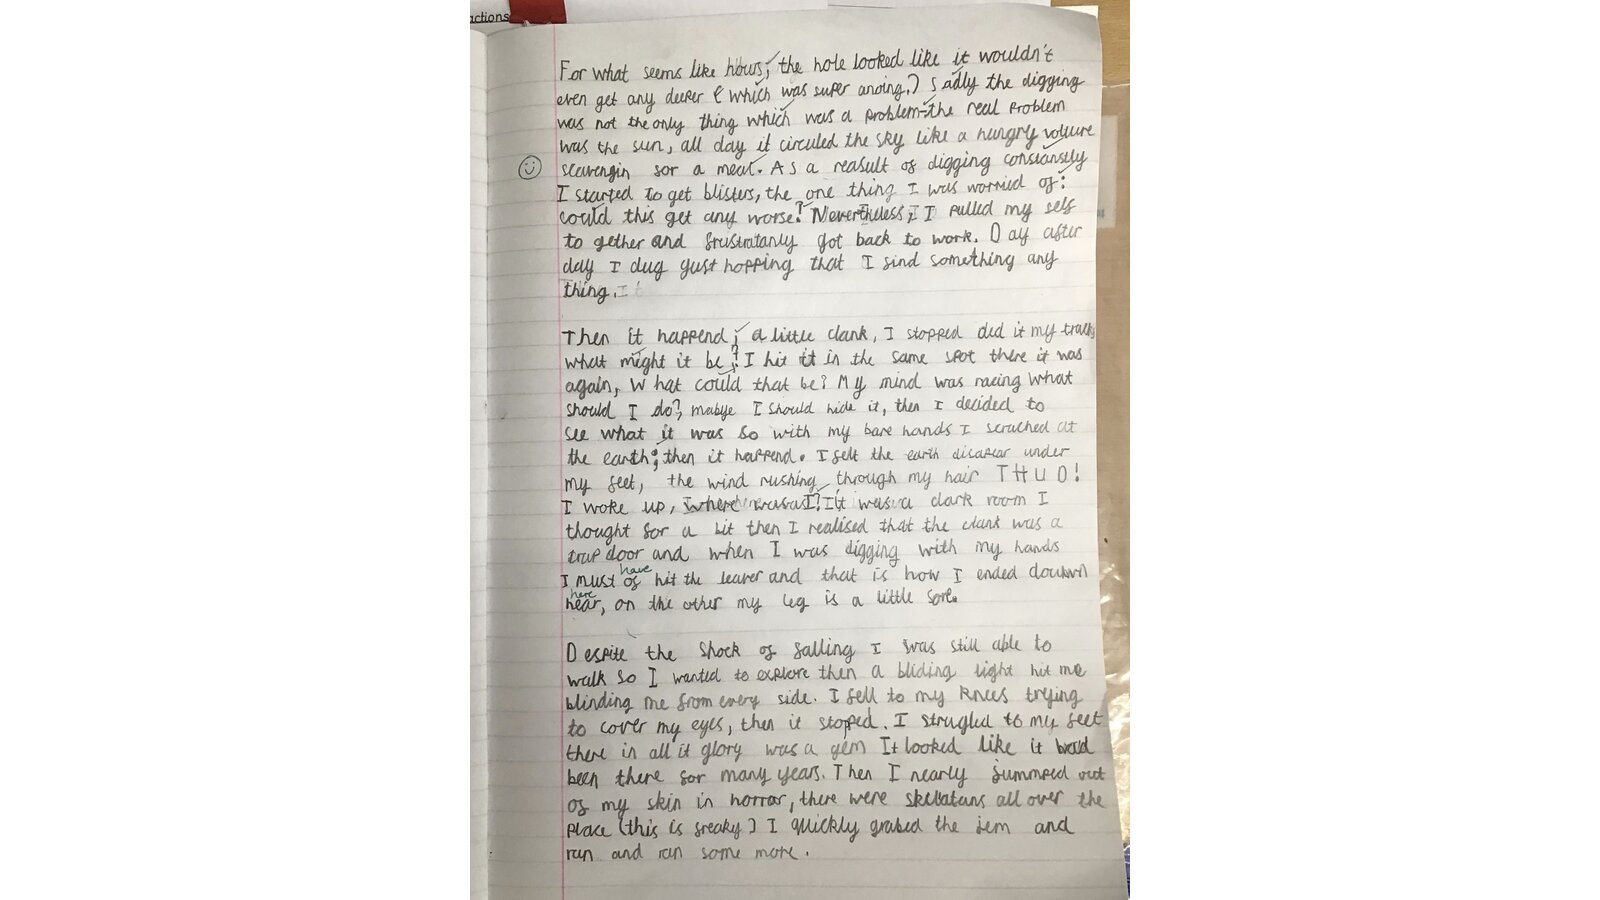 actions
For what seems like hours, the hole looked like it wouldn't
even get any deeper (which was super anoing.) Sadly the digging
was not the only thing which was a problem-the real problem
was the sun, all day it circuled the sky like a hungry volture
scavengin for a meal. As a reasult of digging constanstly
I started to get blisters, the one thing I was worried of:
could this get any worse? Nevertheless, I pulled my self
to gether and frustratanly got back to work. Day after
day I dug gust hopping that I find something any
thing.
Then it happend, a little clank, I stopped ded it my tracks
what might it be? I hit it in the same spot there it was
again, What could that be? My mind was racing what
should I do?, mabye I should hide it, then I decided to
see what it was so with my bare hands I scrached at
the earth; then it happend. I felt the earth disapear under
my feet, the wind rushing through my hair THUD!
I woke up, where was I? It was a dark room I
thought for a bit then I realised that the clank was a
trap door and when I was digging with my hands
have
I must of hit the leaver and that is how I ended dounwn
here
hear, on the other my leg is a little sore.
Despite the shock of falling I was still able to
walk so I wanted to explore then a bliding light hit me
blinding me from every side. I fell to my knees trying
to cover my eyes, then it stoped. I strugled to my feet
there in all it glory was a gem It looked like it had
been there for many years. Then I nearly jummped out
of my skin in horror, there were skelatans all over the
place (this is freaky) I quickly grabed the jem and
ran and ran some more.